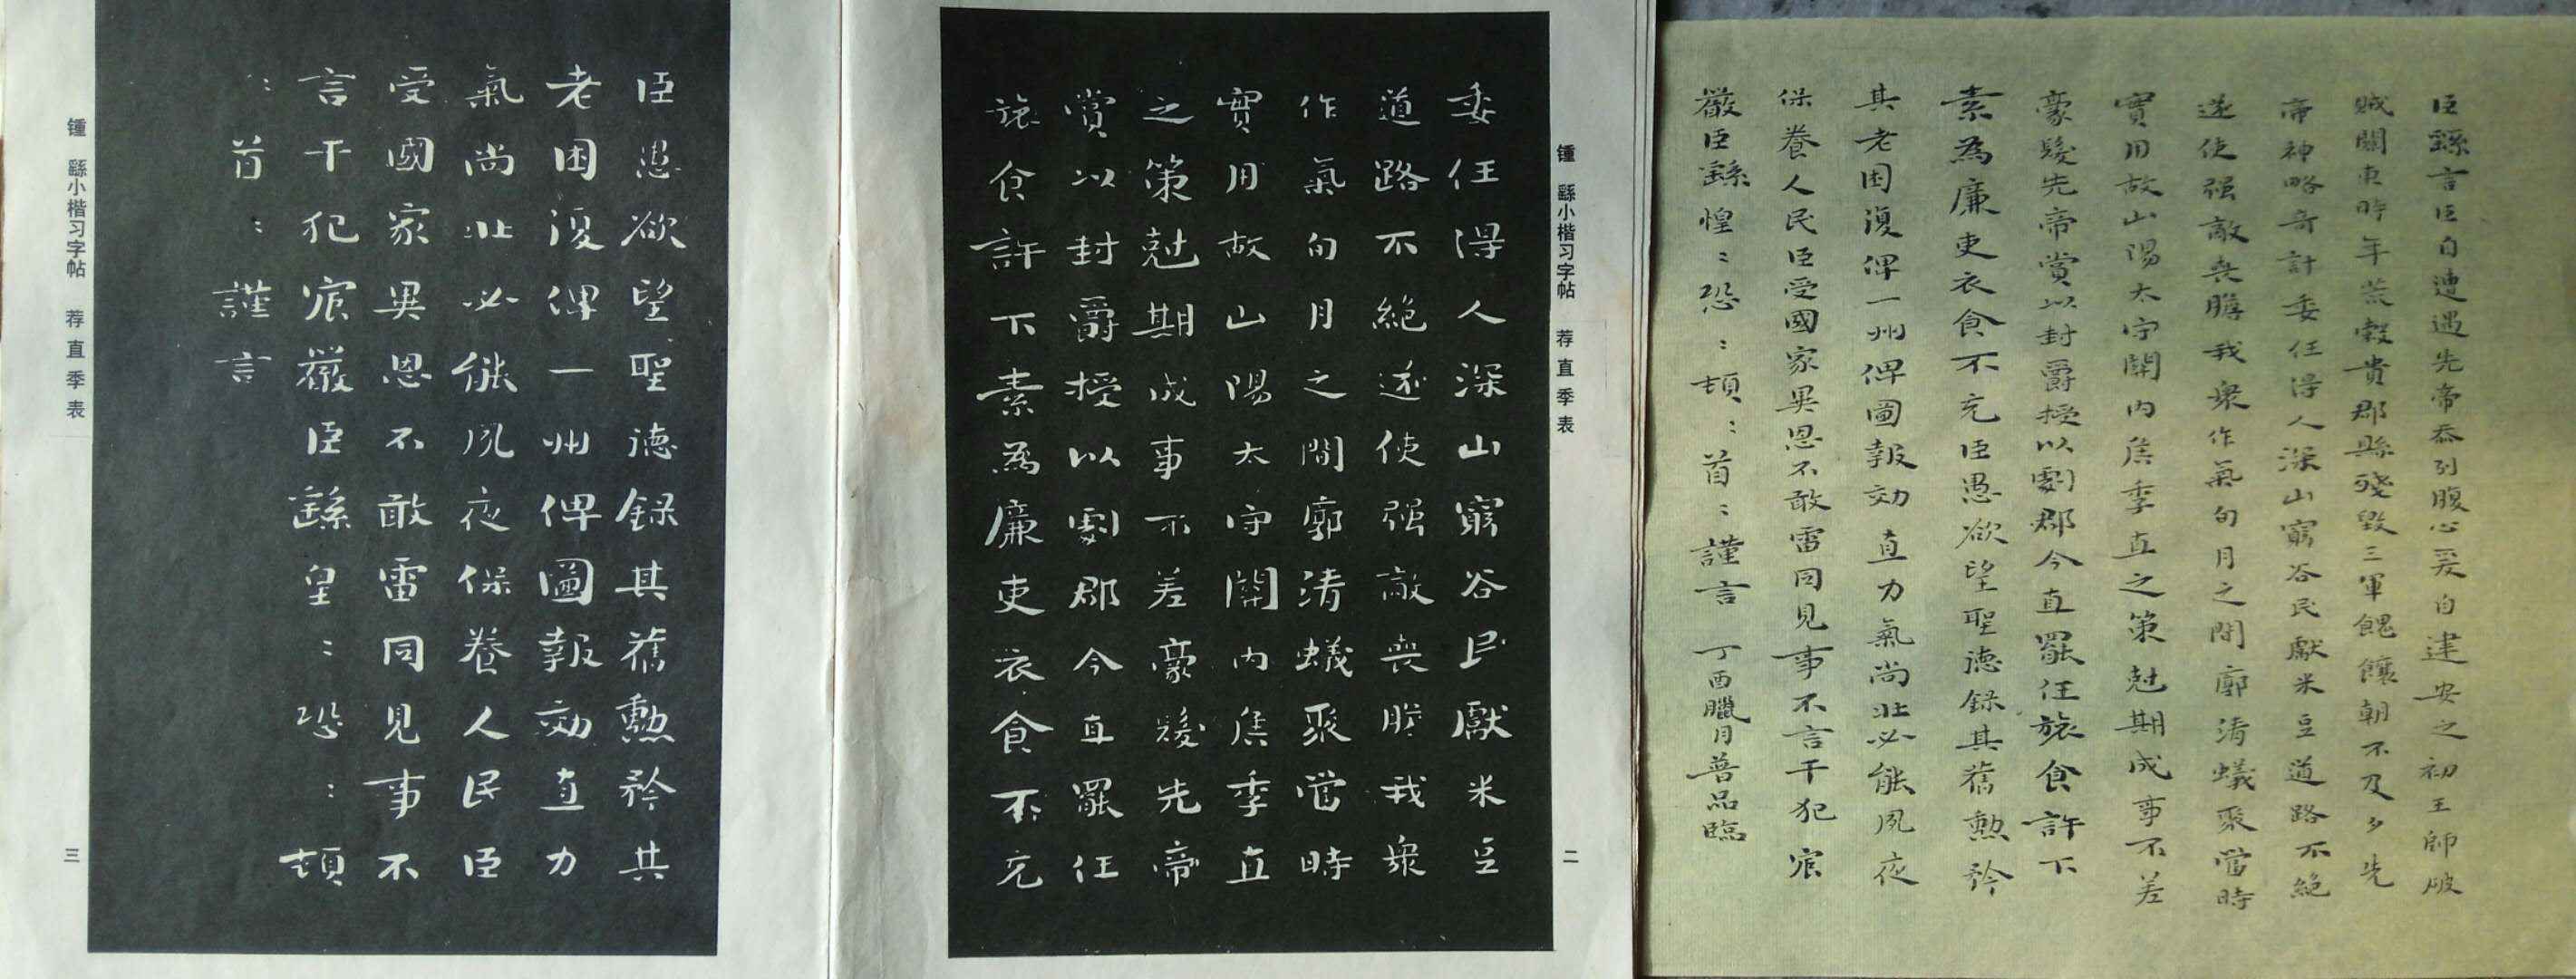 臣繇言臣自遭遇先帝忝列腹心爰自建安之初王師破
賊關東時年荒穀貴郡縣殘毀三軍餽饟朝不及夕先
帝神略奇計委任得人深山窮谷民獻米豆道路不絕
遂使强敵喪膽我衆作氣旬月之間廓清蟻聚當時
實用故山陽太守關內侯季直之策尅期成事不差
豪髮先帝賞以封爵授以劇郡今直罷任旅食許下
素為廉吏衣食不充臣愚欲望聖德錄其舊勳矜
其老困復俾一州俾圖報効直力氣尚壯必能夙夜
保養人民臣受國家異恩不敢雷同見事不言干犯宸
嚴臣繇惶:恐:頓:首:謹言 丁酉臘月普品臨
锺繇小楷习字帖 荐直季表
二
委任得人深山窮谷民獻米豆
道路不絕遂使强敵喪膽我衆
作氣旬月之間廓清蟻聚當時
實用故山陽太守關內侯季直
之策尅期成事不差豪髮先帝
賞以封爵授以劇郡今直罷任
旅食許下素為廉吏衣食不充
臣愚欲望聖德錄其舊勳矜其
老困復俾一州俾圖報効直力
氣尚壯必能夙夜保養人民臣
受國家異恩不敢雷同見事不
言干犯宸嚴臣繇皇:恐:頓
:首:謹言
锺繇小楷习字帖 荐直季表
三